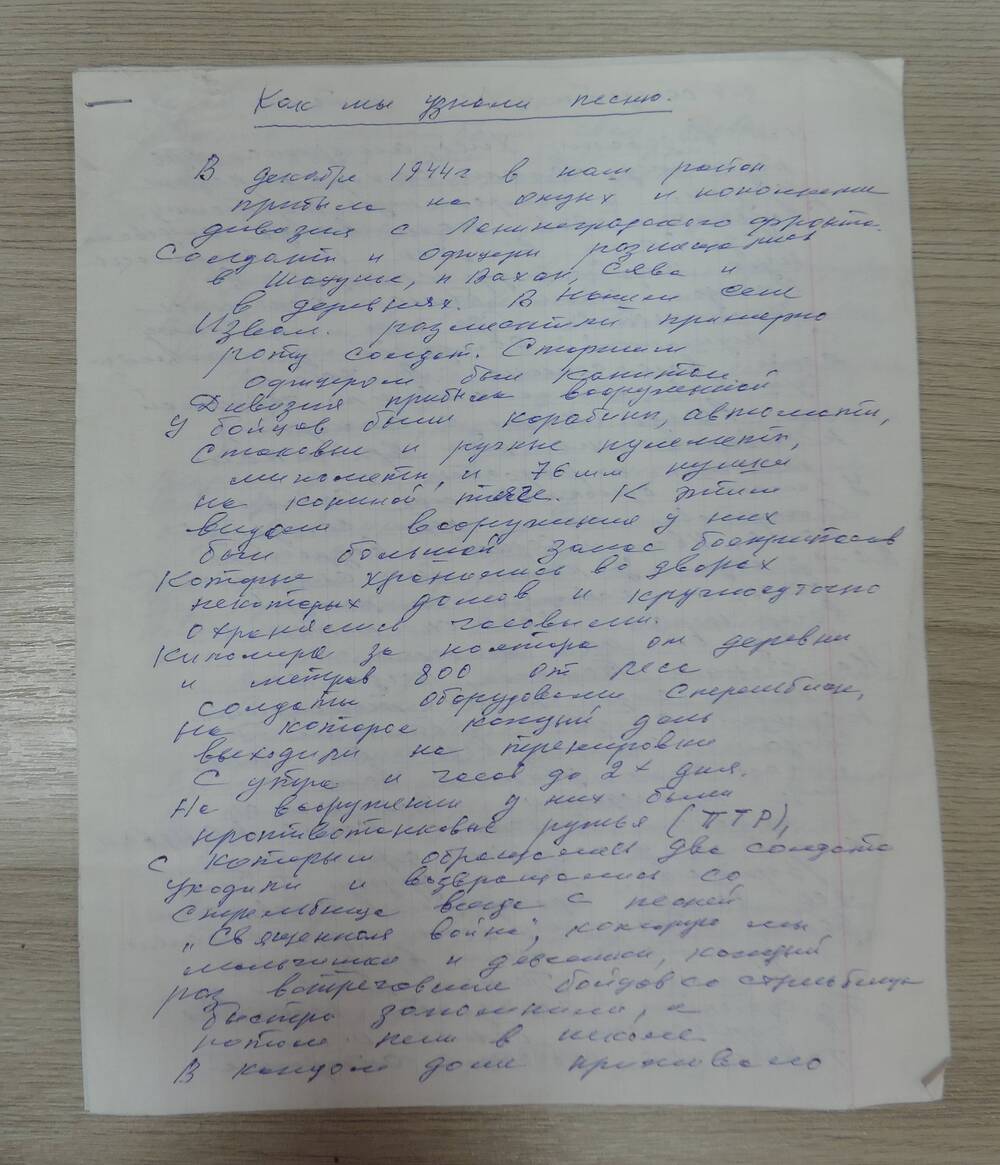 Как мы узнали песню.
В декабре 1944г в наш район
прибыла на отдых и пополнение
дивизия с Ленинградского фронта.
Солдаты и офицеры размещались
в Шахунье, п Вахтан, Сява и
в деревнях. В нашем селе
разместили примерно
роту солдат. Старшим
офицером был капитан
Дивизия прибыла вооруженной
У бойцов были карабины, автоматы,
Станковые и ручные пулеметы,
минометы, и 76 мм пушки
на конной тяге. К этим
видам вооружения у них
был большой запас боеприпасов
Которые хранились во дворах
некоторых домов и круглосуточно
охранялись часовыми.
Километра за полтора от деревни
и метров 800 от леса
солдаты оборудовали стрельбище,
на которое каждый день
выходили на тренировки
С утра и часов до 2х дня.
На вооружении у них были
противотанковые ружья (ПТР),
с которым обращались два солдата
Уходили и возвращались со
стрельбища всегда с песней
"Священная война", которую мы
мальчишки и девчонки, каждый
раз встречавшие бойцов со стрельбища
быстро запомнили, а
потом пели в школе.
В каждом доме проживало